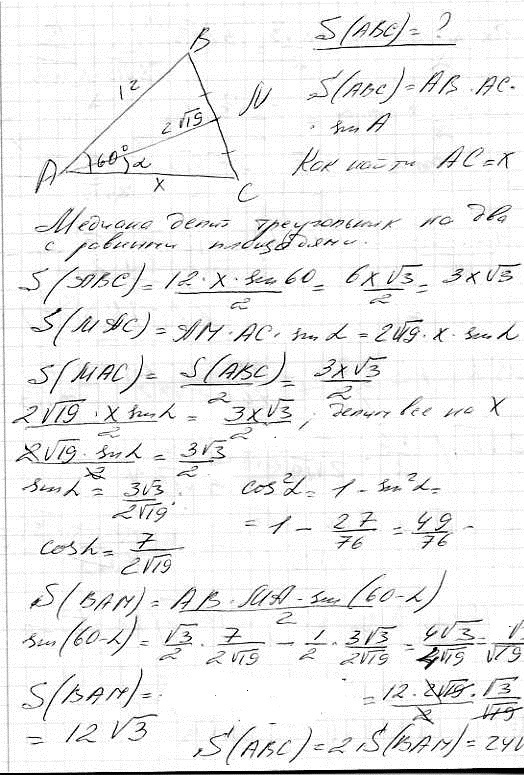 S(ABC) = ?
B
12
M
2√19
60°
α
A
x
C
S(ABC) = AB · AC ·
· sin A
Как найти AC = x
Медиана делит треугольник на два
с равными площадями.
S(ABC) = 12·x·sin 60/2 = 6x√3/2 = 3x√3
S(MAC) = AM · AC · sin α = 2√19 · x · sin α
S(MAC) = S(ABC)/2 = 3x√3/2
2√19 · x sin α/2 = 3x√3/2 ; делим все на x
2√19 · sin α/2 = 3√3/2
sin α = 3√3/2√19 ;
cos²α = 1 - sin²α =
= 1 - 27/76 = 49/76
cos α = 7/2√19
S(BAM) = AB · MA · sin(60-α)/2
sin(60-α) = √3/2 · 7/2√19 - 1/2 · 3√3/2√19 = 4√3/4√19 = √/√19
S(BAM) =
= 12·2√19/2 · √3/√19
= 12√3
S(ABC) = 2 S(BAM) = 24√